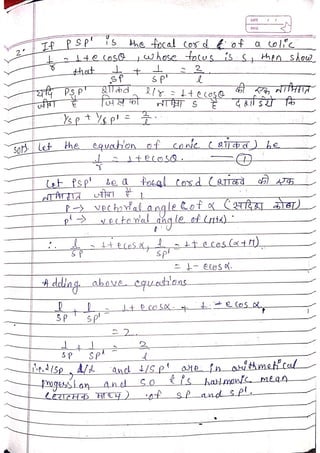 2. If PSP' is the focal cord f of a colic
l/r = 1+e cosθ, whose focus is S, then show
that 1/SP + 1/SP' = 2/l.
यदि PSP' शांकव l/r = 1+ecosθ की एक नाभिगत
जीवा है जिसकी नाभि S है दर्शाइये कि
1/SP + 1/SP' = 2/l.
Solⁿ: Let the equation of conic (शांकव) be
l/r = 1+ecosθ. — ①
Let PSP' be a focal cord (शांकव की एक
नाभिगत जीवा है।
P → vectorial angle of α (सदिश कोण)
P' → vectorial angle of (π+α)
∴ l/SP = 1+e cosα, l/SP' = 1+e cos(α+π)
= 1-ecosα.
Adding above equations
l/SP + l/SP' = 1+ecosα + 1-e cosα,
= 2
1/SP + 1/SP' = 2/l
i.e. 1/SP, 1/l and 1/SP' are in arithmetical
progression and so l is harmonic mean
(हरात्मक माध्य) of SP and SP'.